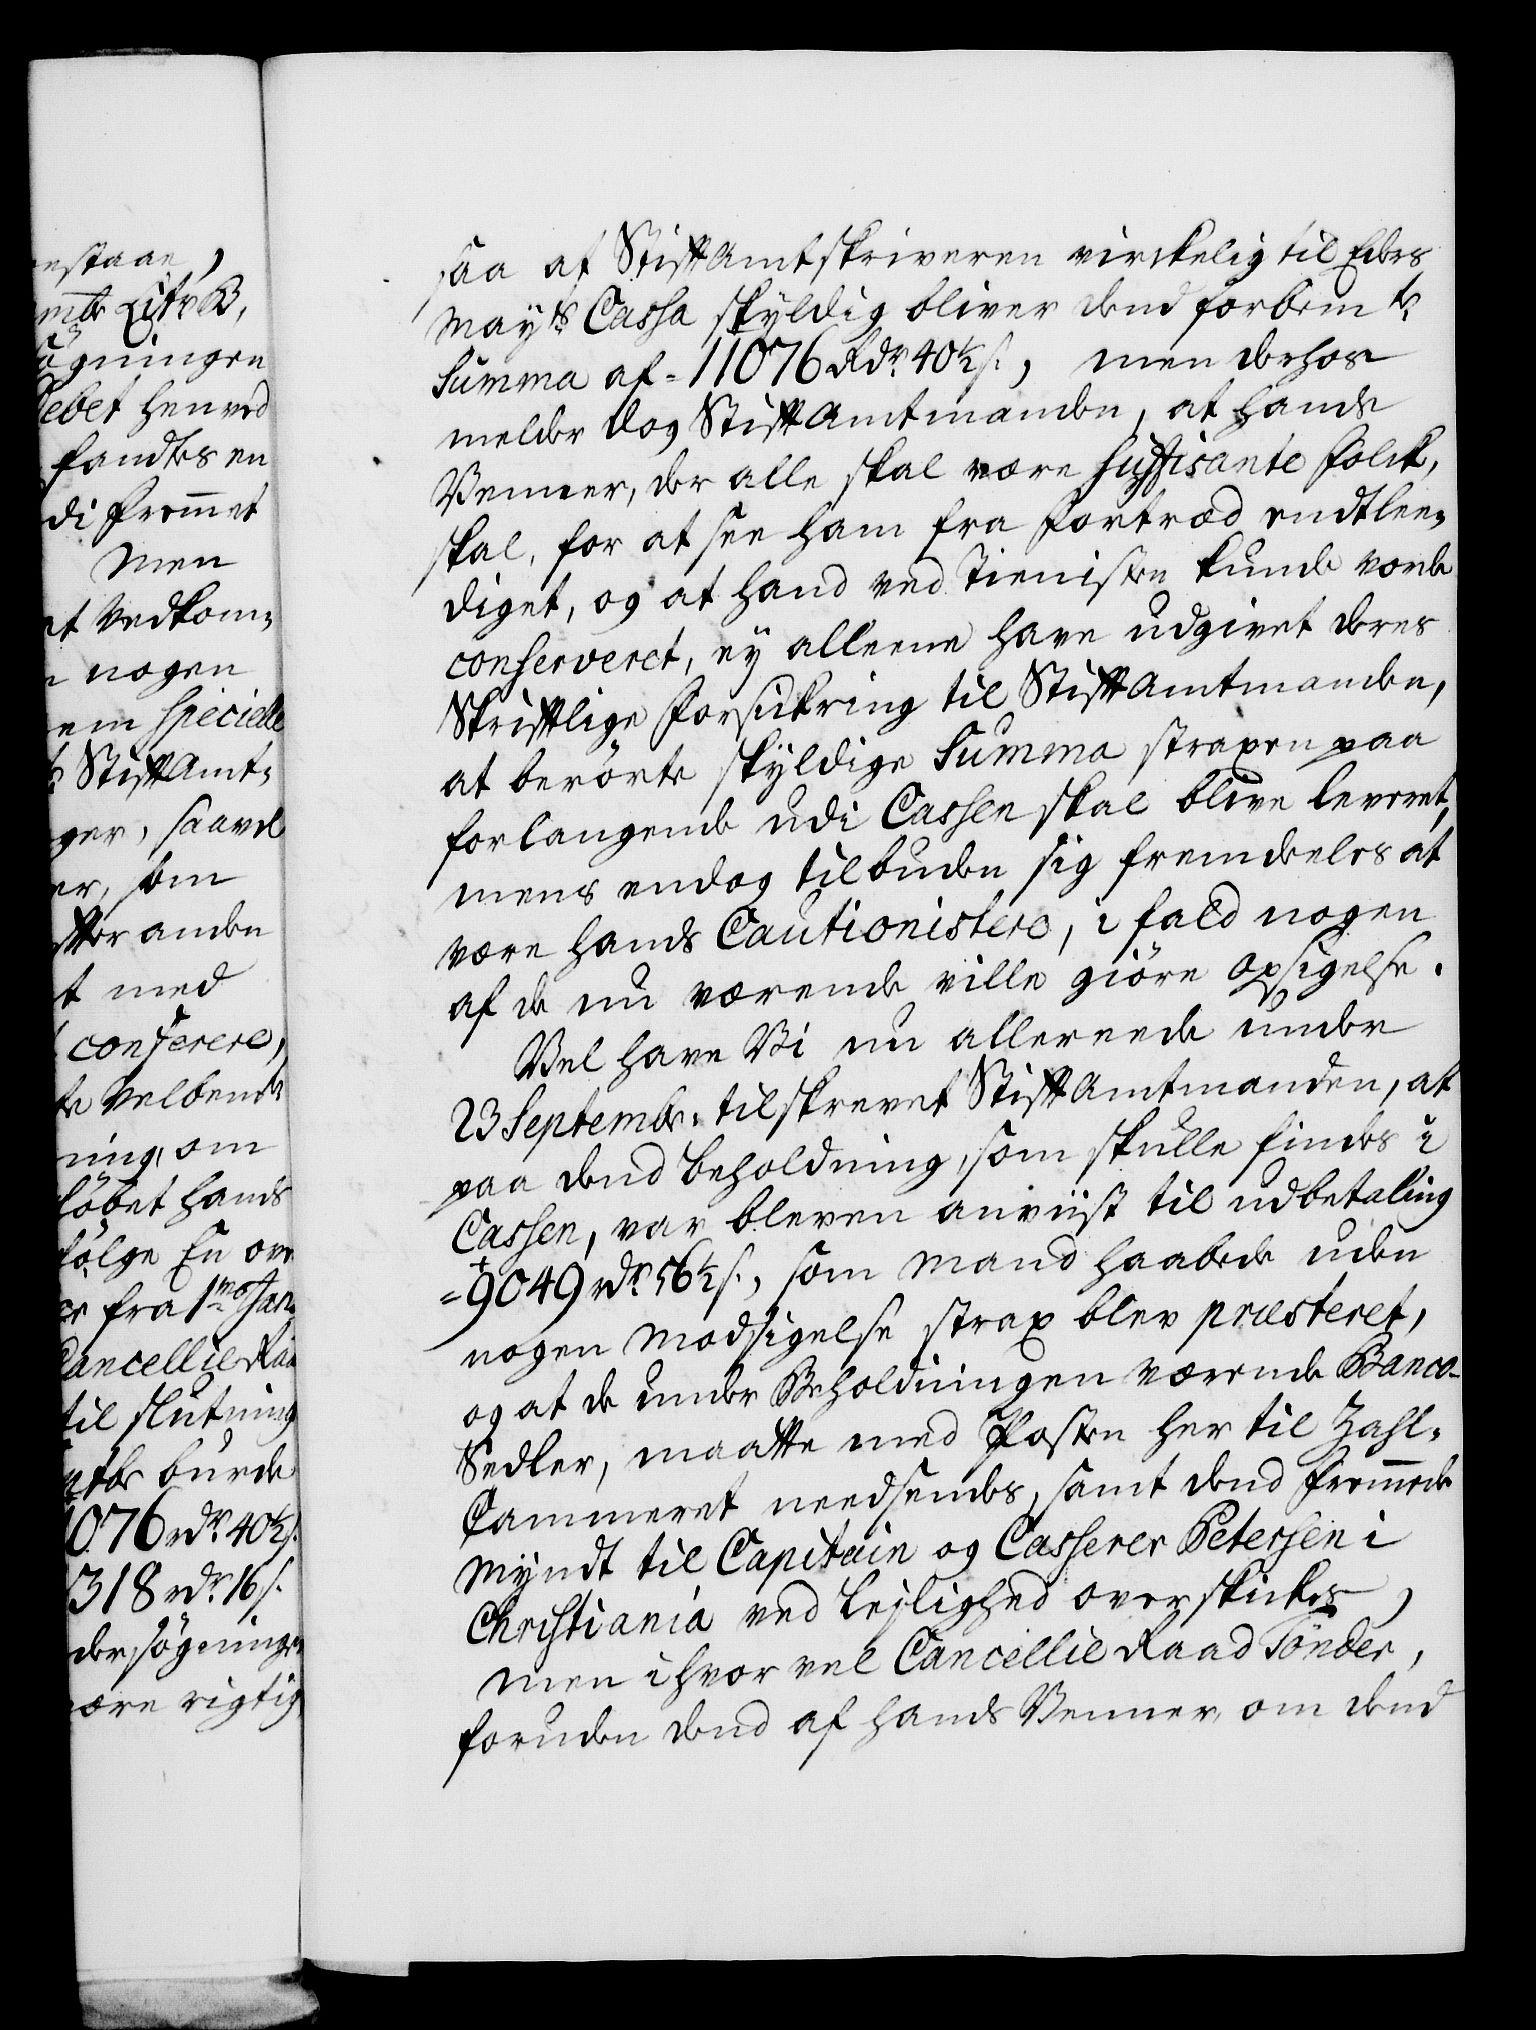 estaae,
mte Litr B,
øgningen
ebet henved
fandtes en
di fremmet
Men
et Vedkom-
nogen
em specielle
StiftAmt-
ger, saavel
er, som
ter anden
t med
conferere,
te Velbemte
ning, om
løbet hands
følge En ov
er fra 1mo Jan
Cancellie Raa
til slutning
burde
1076 rdr. 40½ s.
318 rdr. 16 s.
dersøgninge
ære rigtig
saa at StiftAmtskriveren virckelig til Eders
Mayts Cassa skyldig bliver dend forbemte
Summa af = 11076 Rdr. 40½ s., men derhos
melder dog StiftAmtmanden, at hands
Venner, der alle skal være suffisante folck,
skal, for at see ham fra fortræd endtlee-
diget, og at hand ved Tienisten kunde vorde
conserveret, ey alleene have udgivet deres
Skriftlige forsickring til StiftAmtmanden,
at berørte skyldige Summa straxen paa
forlangende udi Cassen skal blive leveret,
mens endog tilbuden sig fremdeeles at
være hands Cautionistere, i fald nogen
af de nu værende ville giøre opsigelse.
Vel have Vi nu allereede under
23 Septembr. tilskrevet StiftAmtmanden, at
paa dend beholdning, som skulle findes i
Cassen, var bleven anviist til udbetaling
= 9049 rdr. 56½ s., som mand haabede uden
nogen modsigelse strax blev præsteret,
og at de under Beholdningen værende Banco-
Sedler, maatte med Posten her til Zahl-
Cammeret needsendes, samt dend fremmede
Myndt til Capitain og Casserer Petersen i
Christiania ved Lejlighed overskickes,
men i hvor vel Cancellie Raad Tønder,
foruden dend af hands Venner, om dend